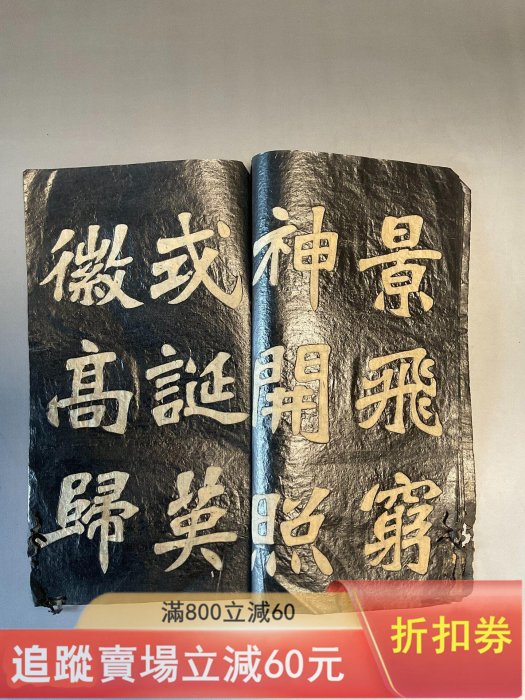 景飛窮
神開照
或誕英
徽髙歸
滿800立減60
追蹤賣場立減60元
折扣券